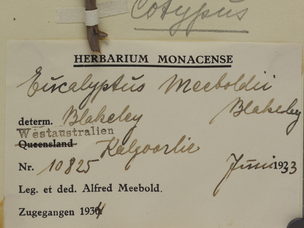 Cotypus
HERBARIUM MONACENSE
Eucalyptus Meeboldii
Blakeley
determ. Blakeley
Westaustralien
Queensland Kalgoorlie
Nr. 10825 Juni 1933
Leg. et ded. Alfred Meebold.
Zugegangen 1934